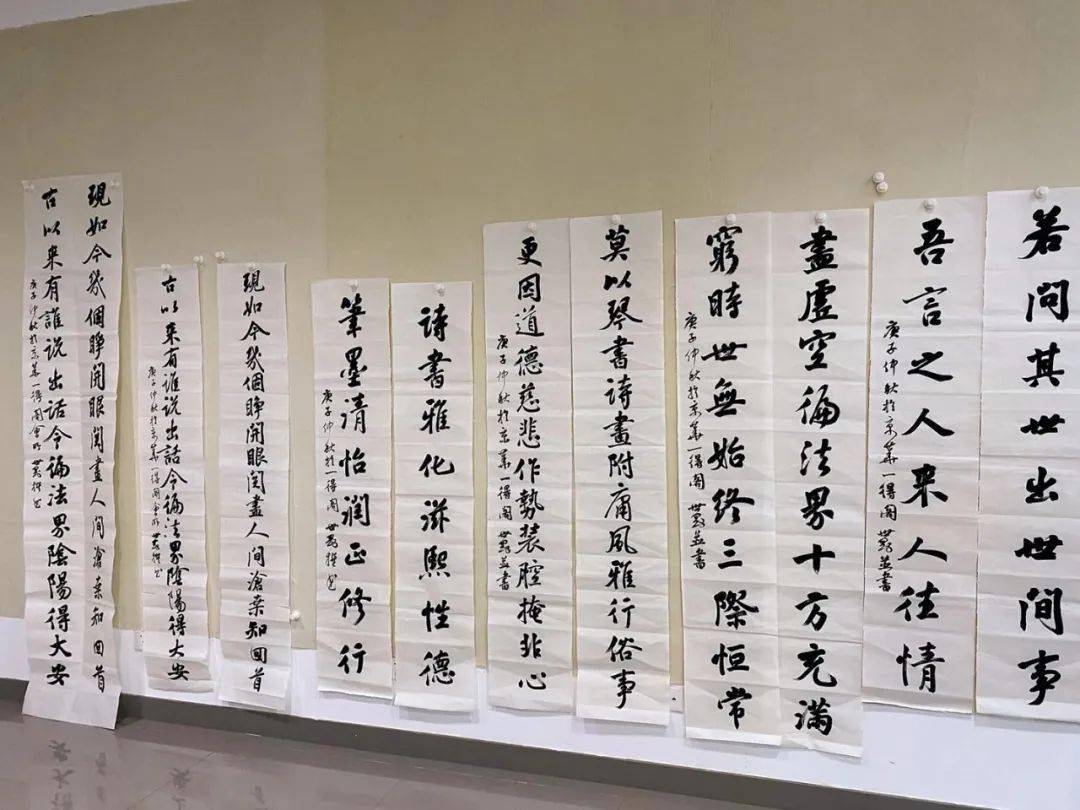 若問其世出世間事
吾言之人来人往情
庚子仲秋於京華一得閣
盡虛空徧法界十方充滿
窮時世無始終三際恒常
庚子仲秋於京華一得閣
莫以琴書詩畫附庸風雅行俗事
更因道德慈悲作勢裝腔掩非心
庚子仲秋於京華一得閣
詩書雅化滋熙性德
筆墨清怡潤正修行
庚子仲秋於一得閣
現如今幾個睜開眼閱盡人间滄桑知回首
古以来有誰説出話今論法界陰陽得大安
庚子仲秋於京華一得閣
現如今幾個睜開眼閱盡人间滄桑知回首
古以来有誰説出話今論法界陰陽得大安
庚子仲秋於京華一得閣